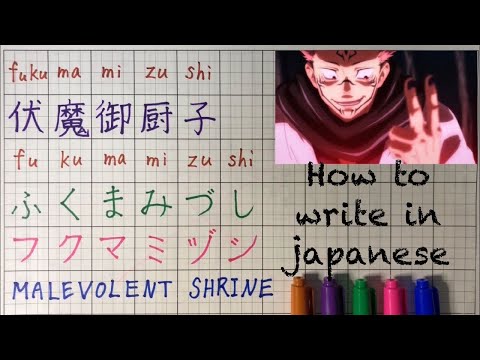 fuku ma mi zu shi
伏魔御厨子
fu ku ma mi zu shi
ふくまみづし
フクマミヅシ
MALEVOLENT SHRINE
How to
write in
japanese